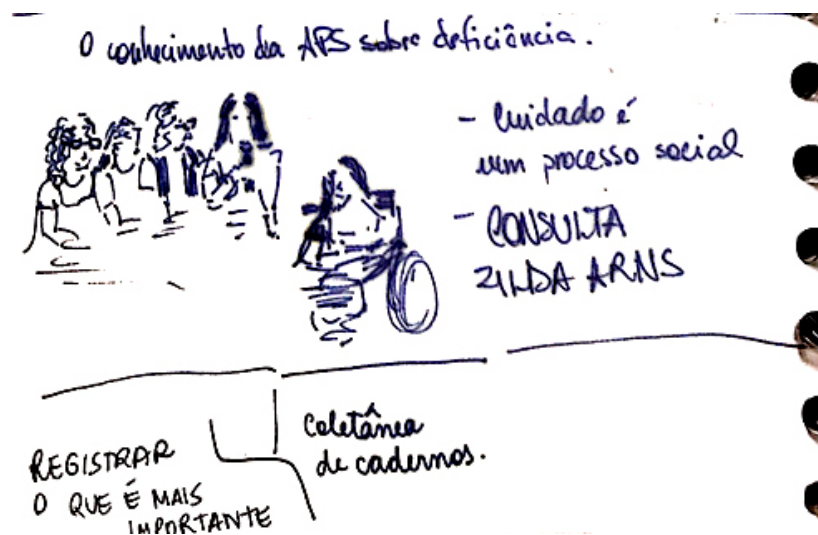 O conhecimento da APS sobre deficiência.
- Cuidado é
um processo social
- CONSULTA
ZILDA ARNS
REGISTRAR
O QUE É MAIS
IMPORTANTE
Coletânea
de cadernos.